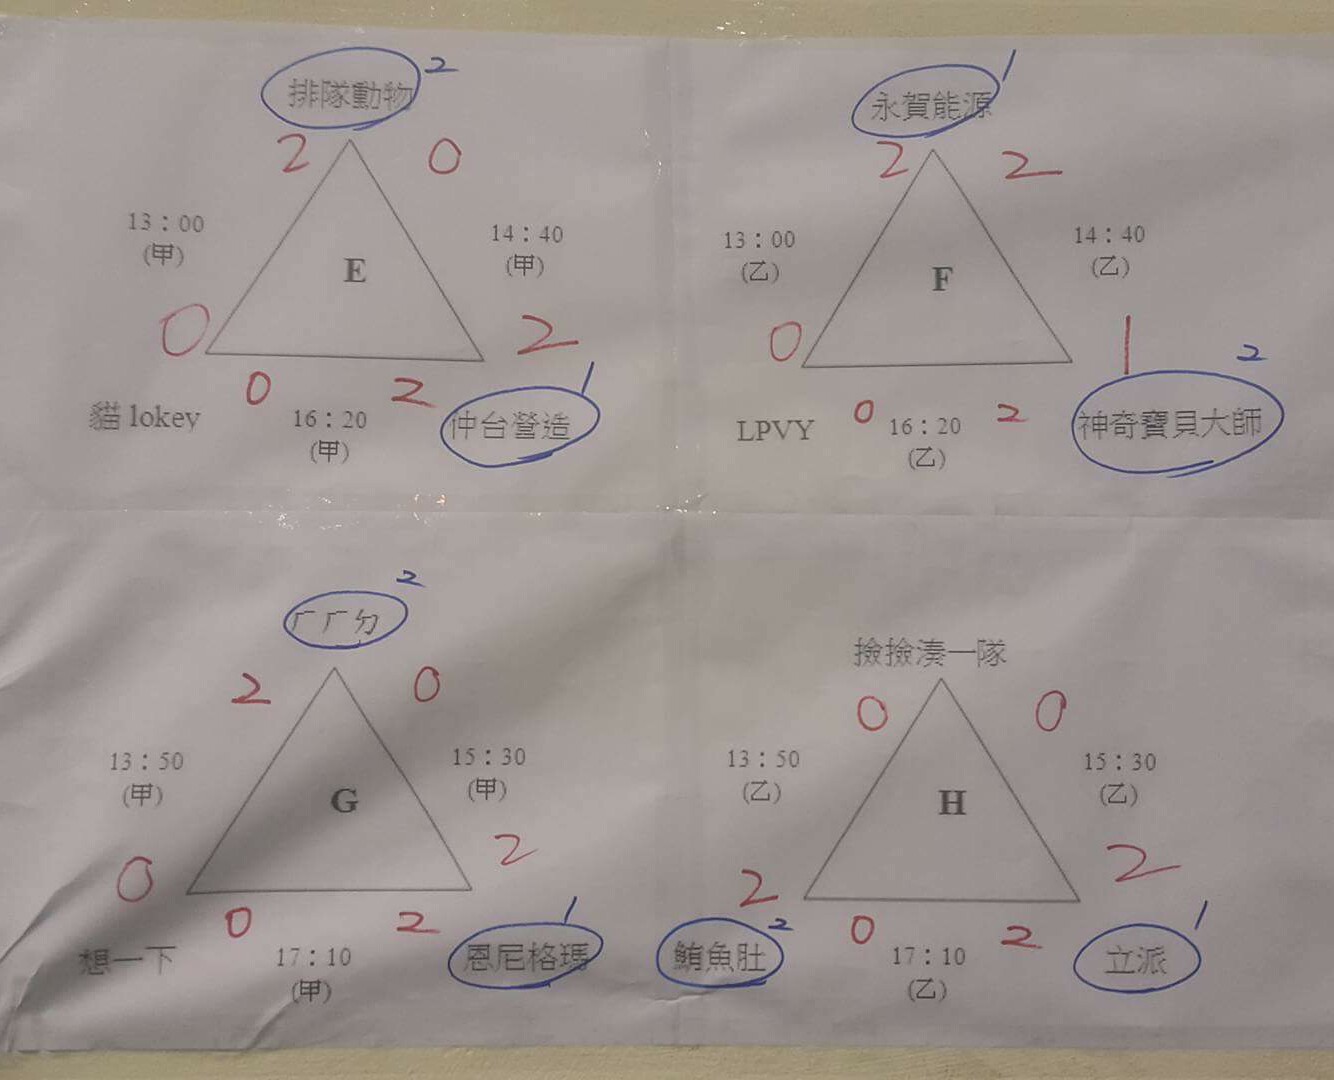 排隊動物 2
2 0
13：00
(甲)
14：40
(甲)
E
0 2
0 2 1
貓 lokey
16：20
(甲)
仲台營造
永賀能源 1
2 2
13：00
(乙)
14：40
(乙)
F
0 1 2
LPVY
0 2
16：20
(乙)
神奇寶貝大師
2
ㄏㄏㄉ
2 0
13：50
(甲)
15：30
(甲)
G
0 2
0 2 1
想一下
17：10
(甲)
恩尼格瑪
撿撿湊一隊
0 0
13：50
(乙)
15：30
(乙)
H
2 2
鮪魚肚 2
0 2 1
17：10
(乙)
立派